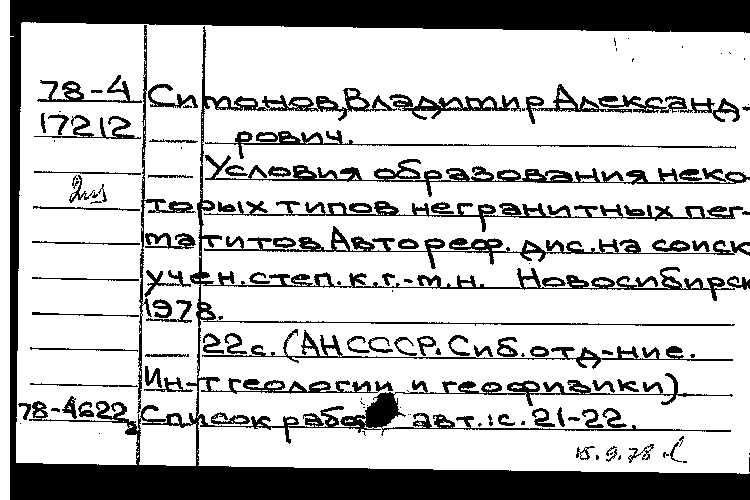 78-4 Симонов, Владимир Александ-
17212 рович.
Условия образования неко-
торых типов негранитных пег-
матитов. Автореф. дис. на соиск.
учен. степ. к. г.-м. н. Новосибирск
1978.
22 с. (АН СССР. Сиб. отд-ние.
Ин-т геологии и геофизики).
78-4622 Список работ авт.: с. 21-22.
15.9.78